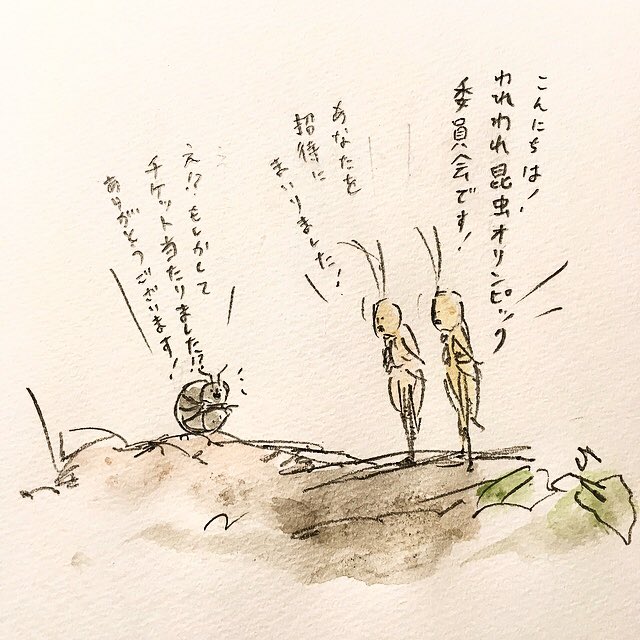 こんにちは!
われわれ昆虫オリンピック
委員会です!
あなたを
招待に
まいりました!
え!?もしかして
チケット当たりました!?
ありがとうございます!